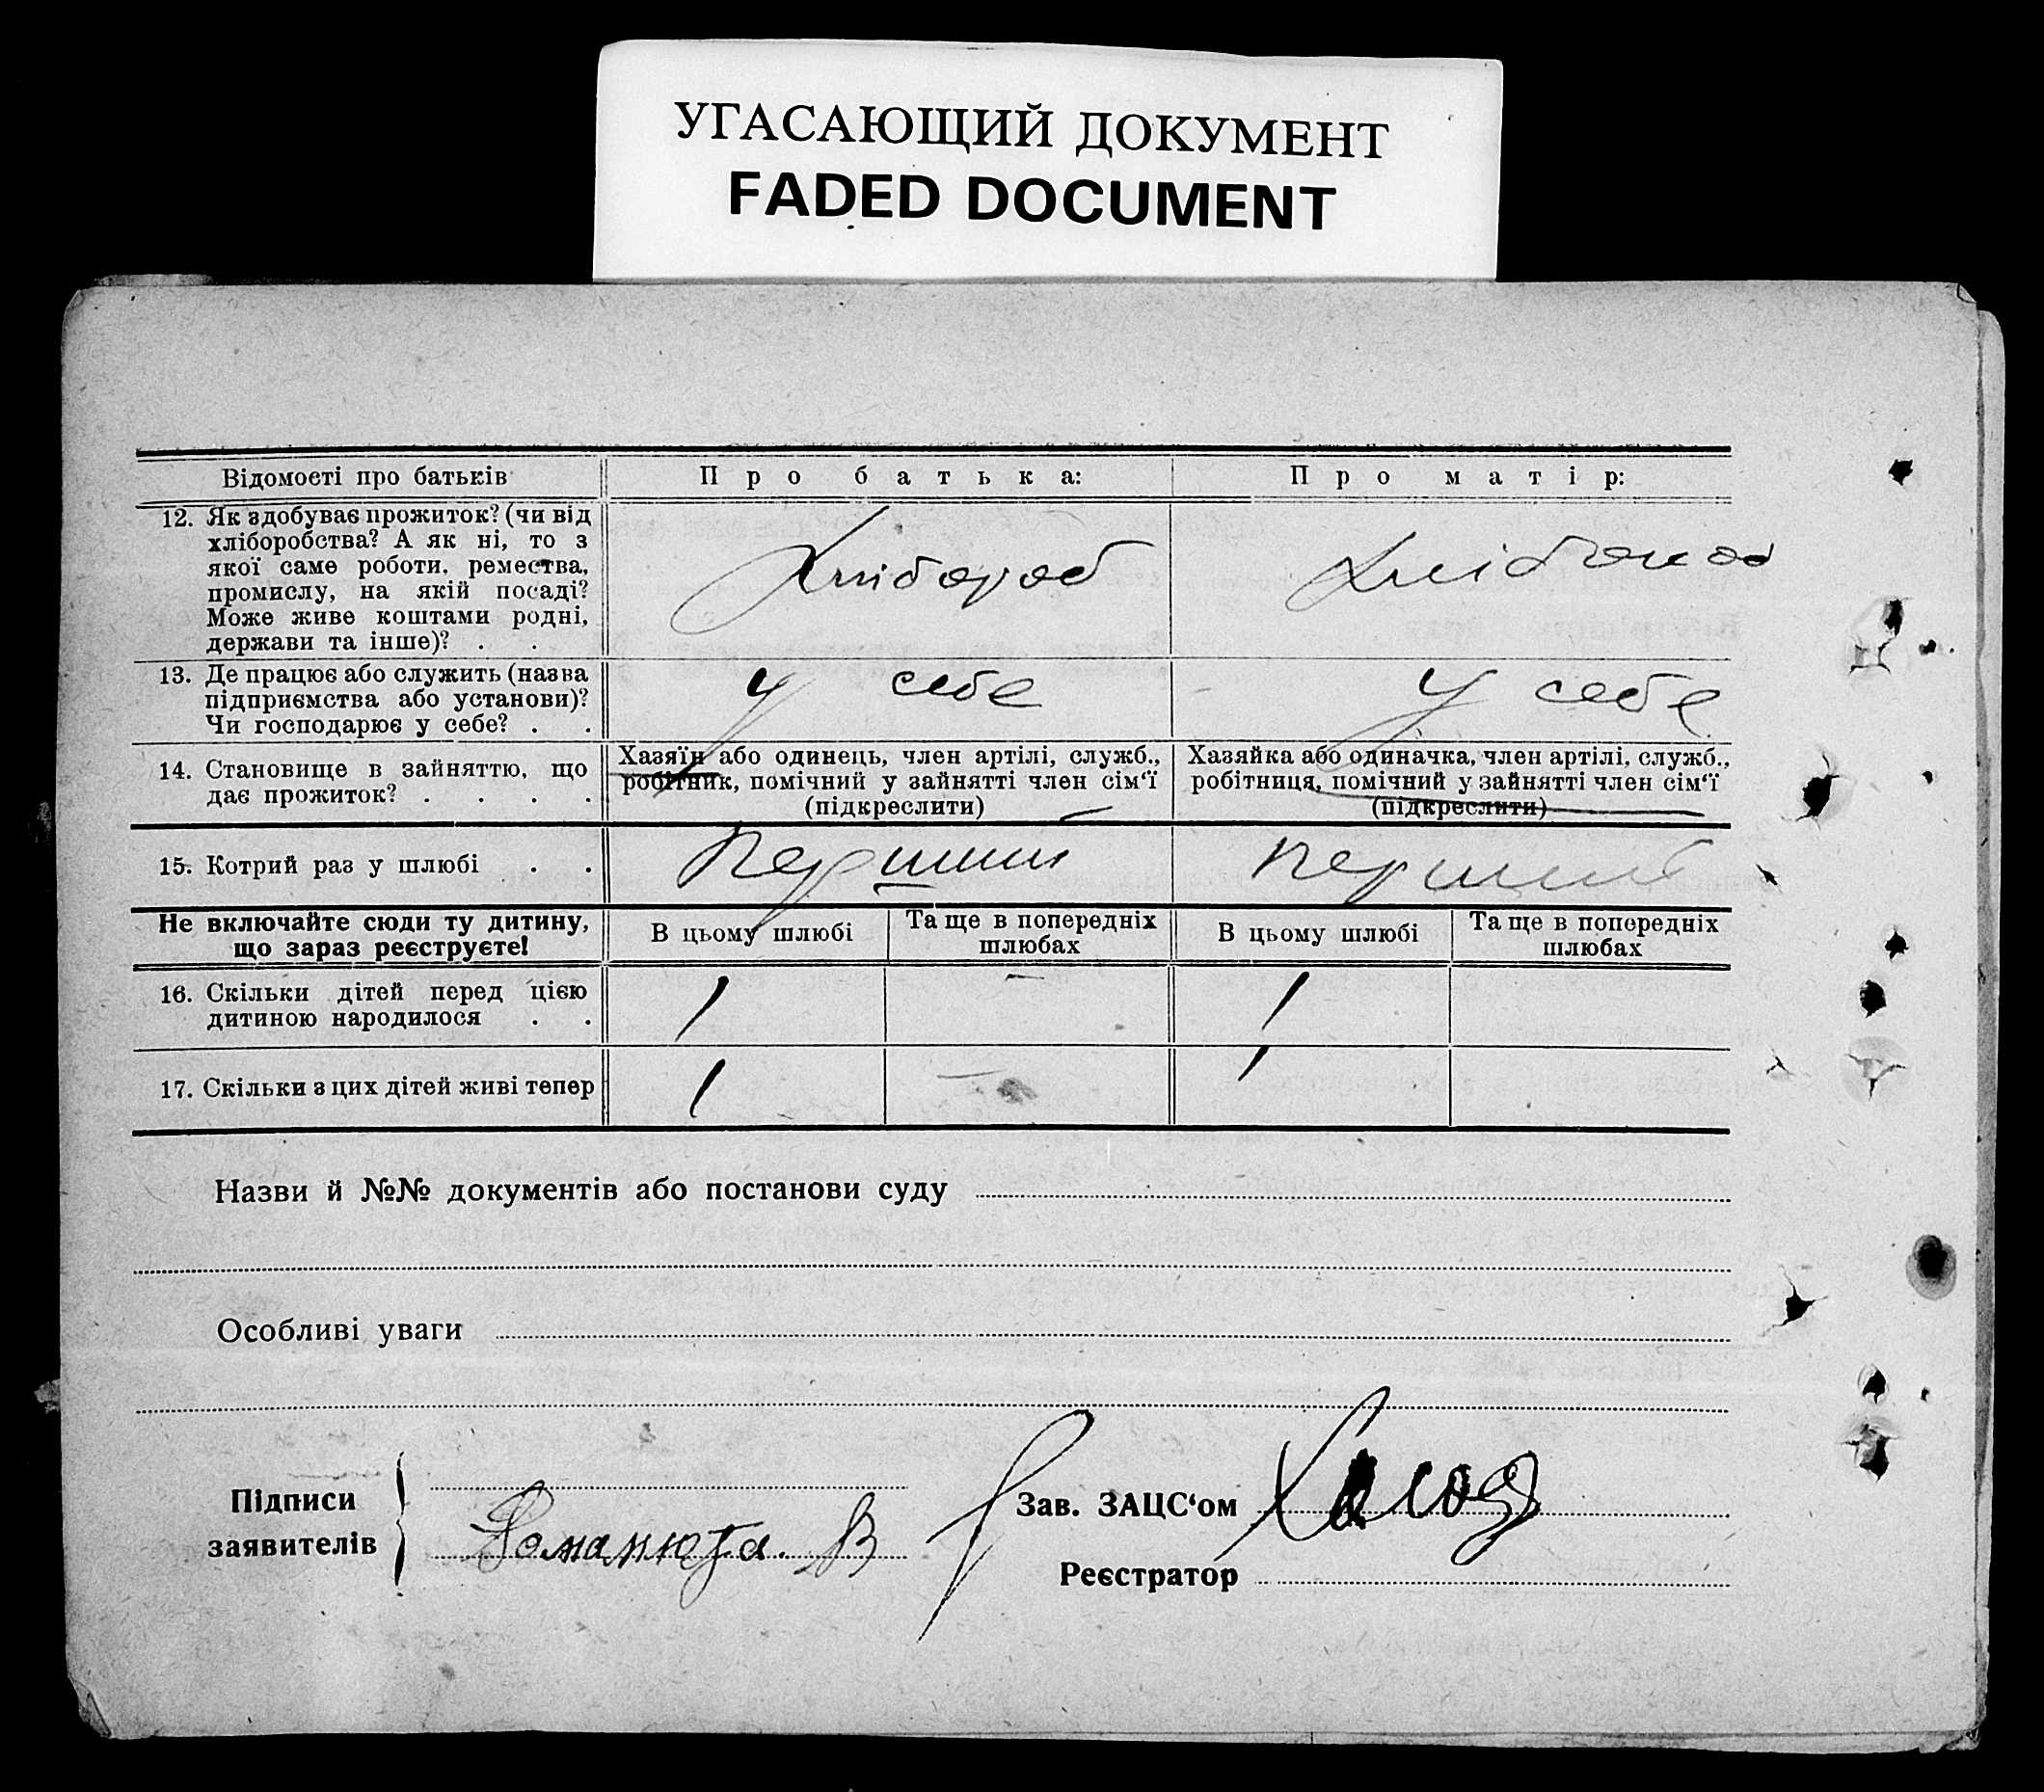 УГАСАЮЩИЙ ДОКУМЕНТ
FADED DOCUMENT
Відомості про батьків
Про батька:
Про матір:
12. Як здобуває прожиток? (чи від
хліборобства? А як ні, то з
якої саме роботи, ремества,
промислу, на якій посаді?
Може живе коштами родні,
держави та інше)? . .
Хлібороб
13. Де працює або служить (назва
підприємства або установи)?
Чи господарює у себе? . .
у себе
у себе
14. Становище в зайняттю, що
дає прожиток? . . . .
Хазяїн або одинець, член артілі, служб.,
робітник, помічний у зайнятті член сім‘ї
(підкреслити)
Хазяйка або одиначка, член артілі, служб.,
робітниця, помічний у зайнятті член сім‘ї
(підкреслити)
15. Котрий раз у шлюбі . .
Перший
перший
Не включайте сюди ту дитину,
що зараз реєструєте!
В цьому шлюбі
Та ще в попередніх
шлюбах
В цьому шлюбі
Та ще в попередніх
шлюбах
16. Скільки дітей перед цією
дитиною народилося . .
1
–
1
17. Скільки з цих дітей живі тепер
1
–
1
Назви й №№ документів або постанови суду
Особливі уваги
Підписи
заявителів
Доманюта. В
Зав. ЗАЦС‘ом
Реєстратор